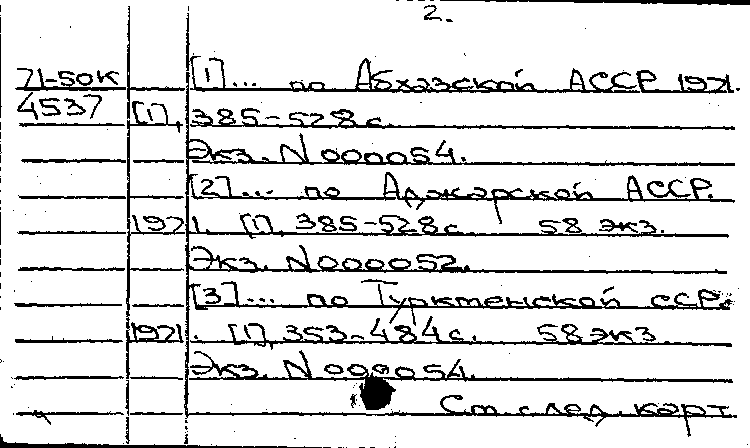 2.
71-50к [1]... по Абхазской АССР 1971.
4537 [1], 385-528 с.
Экз. N 000054.
[2]... по Аджарской АССР.
1971. [1], 385-528 с. 58 экз.
Экз. N 000052.
[3]... по Туркменской ССР.
1971. [1], 353-484 с. 58 экз.
Экз. N 000054.
См. след. карт.